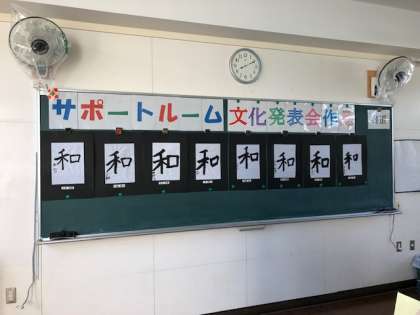 サポートルーム 文化発表会作品
和 和 和 和 和 和 和 和